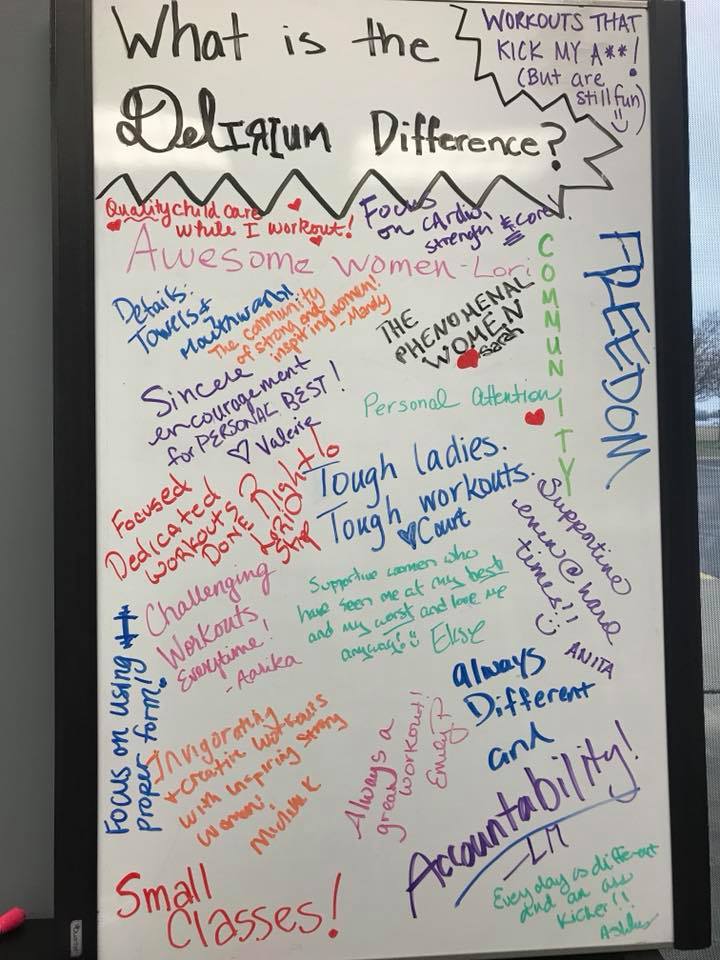 What is the
DELIRIUM Difference?
WORKOUTS THAT
KICK MY A**!
(But are
still fun)
Quality child care
while I workout!
Focus
on cardio,
strength & core!
Awesome Women-Lori
COMMUNITY
FREEDOM
Details:
Towels +
Mouthwash!
The community
of strong and
inspiring women!
-Mandy
THE
PHENOMENAL
WOMEN
Sarah
Sincere
encouragement
for PERSONAL BEST!
Valerie
Personal Attention
Focused
Dedicated
WORKOUTS
DONE Right!
Tough ladies.
Tough workouts.
Court
Supportive
even @ hard
times!!
ANITA
Challenging
Workouts
Everytime!
Supportive women who
have seen me at my best
and my worst and love me
anyways!
Elise
Focus on using
proper form!
always
Different
and
Invigorating
+ creative workouts
with inspiring strong
women!
Always a
great workout!
Emily P
Accountability!
-LM
Small
Classes!
Every day is different
and an ass
kicker!!